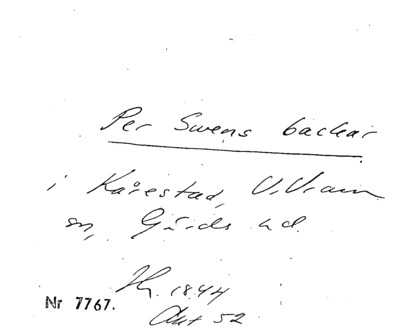 Per Swens backar
i Kårestad, V. Vram
sn, Gärds hd.
1844
Akt 52
Nr 7767.